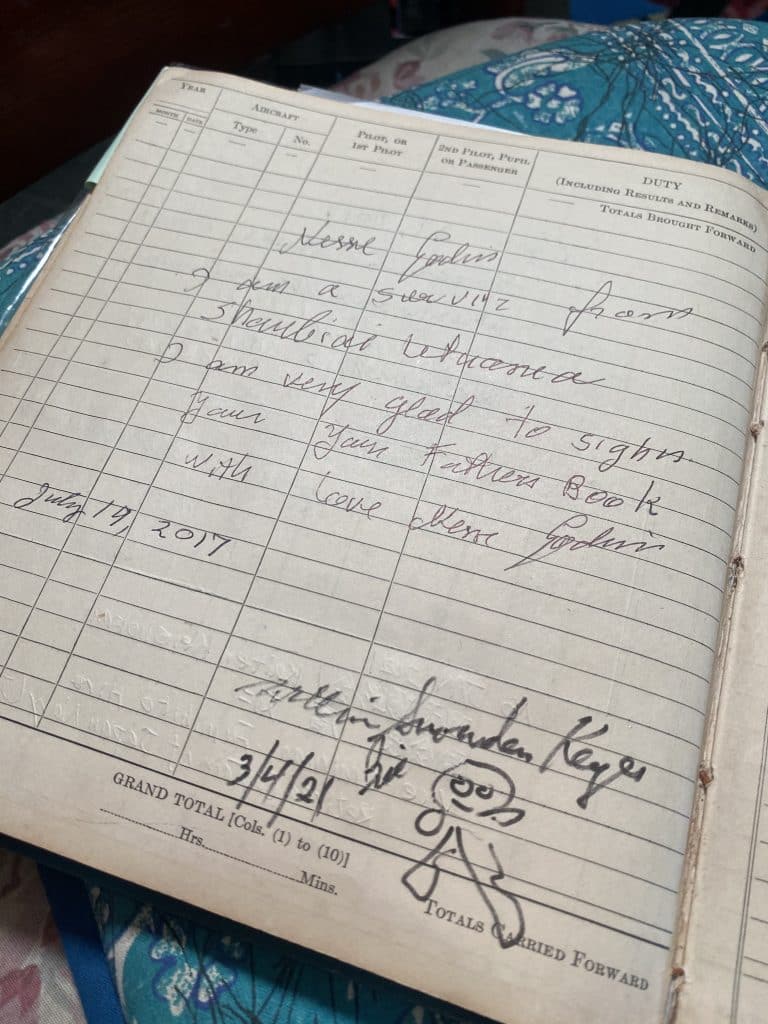 YEAR AIRCRAFT PILOT, OR 1ST PILOT 2ND PILOT, PUPIL OR PASSENGER DUTY (INCLUDING RESULTS AND REMARKS)
MONTH DATE Type No.
TOTALS BROUGHT FORWARD
Nesse Godin
I am a surviz from
Shauliai Letuanea
I am very glad to sighn
your your Fathers Book
with Love Nesse Godin
July 19, 2017
Snowden Keyes
3/4/21
GRAND TOTAL [Cols. (1) to (10)]
Hrs. Mins.
TOTALS CARRIED FORWARD